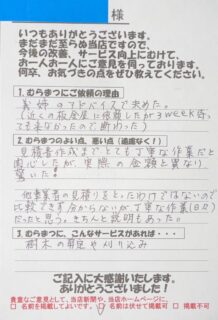 様
いつもありがとうございます。
まだまだ至らぬ当店ですので、
今後の改善、サービス向上にむけて、
お一人お一人にご意見を伺っております。
何卒、お気づきの点をぜひ教えてください。
1. むらまつにご依頼の理由
義姉のアドバイスで決めた。
(近くの板金屋に依頼したが3WEEK待っ
て来なかったので断わった)
2. むらまつのよい点、悪い点(遠慮なく！)
見積書作成までとても丁寧な作業だと
関心したが、実際の金額と異なり
驚いた！
他事業者の見積りをとったわけではないので
比較できず分からないが、丁寧な作業
だったと思う。きちんと説明もあった。
3. むらまつに、こんなサービスがあれば・・・
樹木の剪定や刈り込み
ご記入に大感謝いたします。
ありがとうございました！
貴重なご意見として、当店新聞や、当店ホームページに、
□ 名前を掲載してよいです。 □ 名前は伏せて掲載可 □ 掲載不可